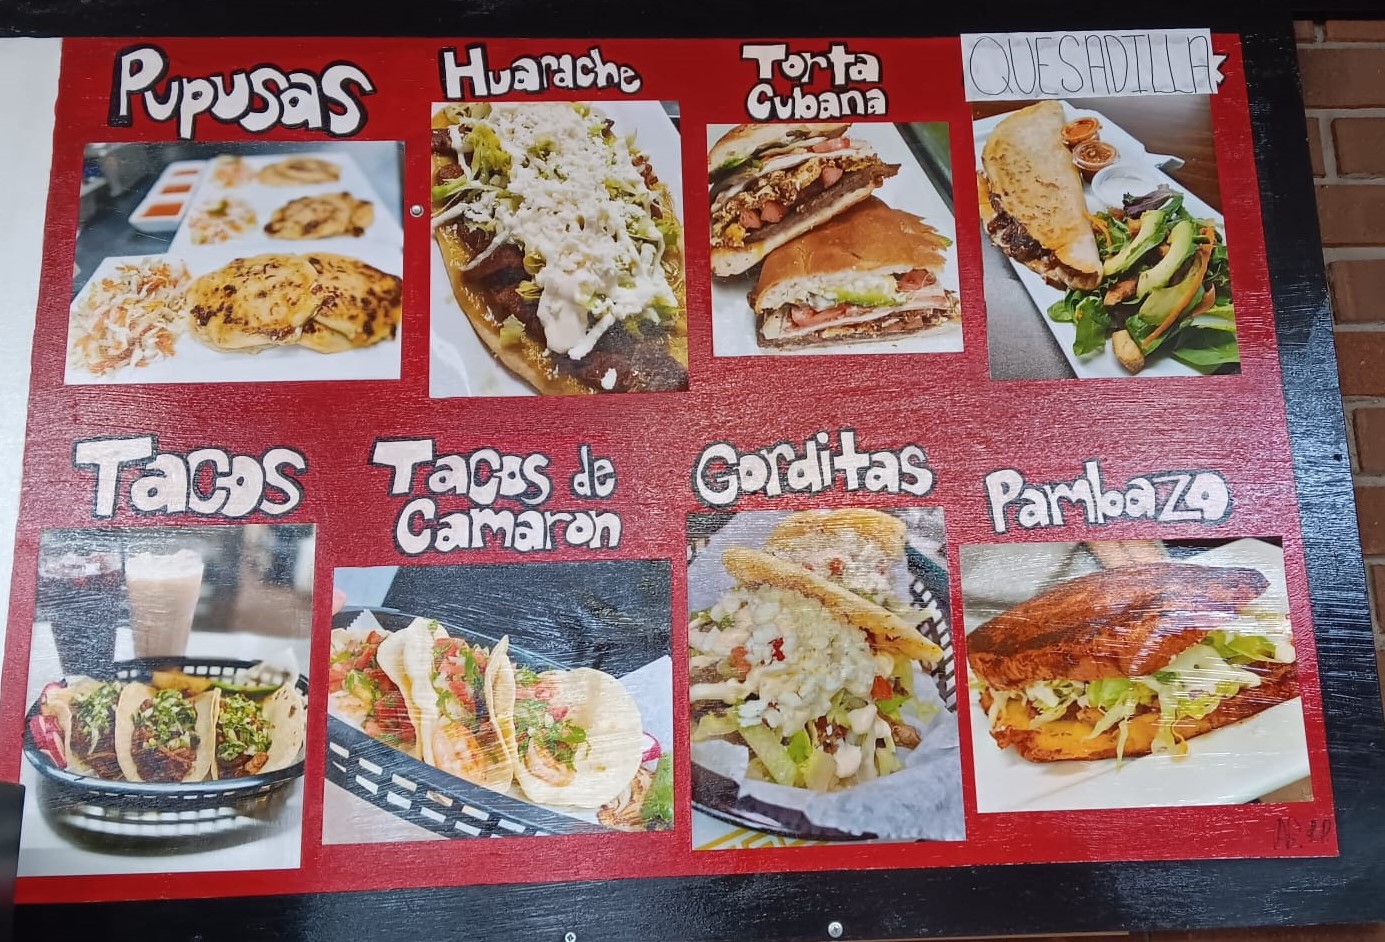 Pupusas
Huarache
Torta
Cubana
QUESADILLA
Tacos
Tacos de
Camaron
Gorditas
Pambazo